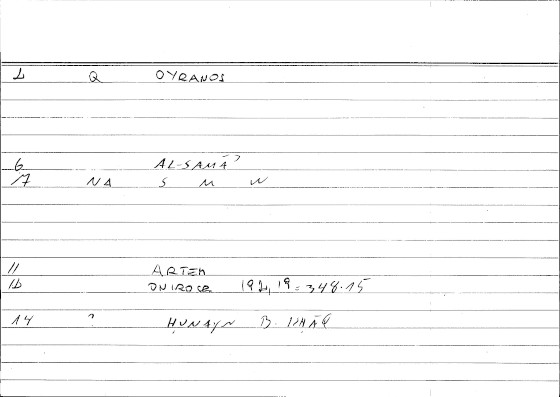 1 Q OYRANOS
6 AL-SAMĀʾ
17 NA S M W
11 ARTEM
1b ONIROCR 192,19 = 348.15
14 ? ḤUNAYN B. ISḤĀQ